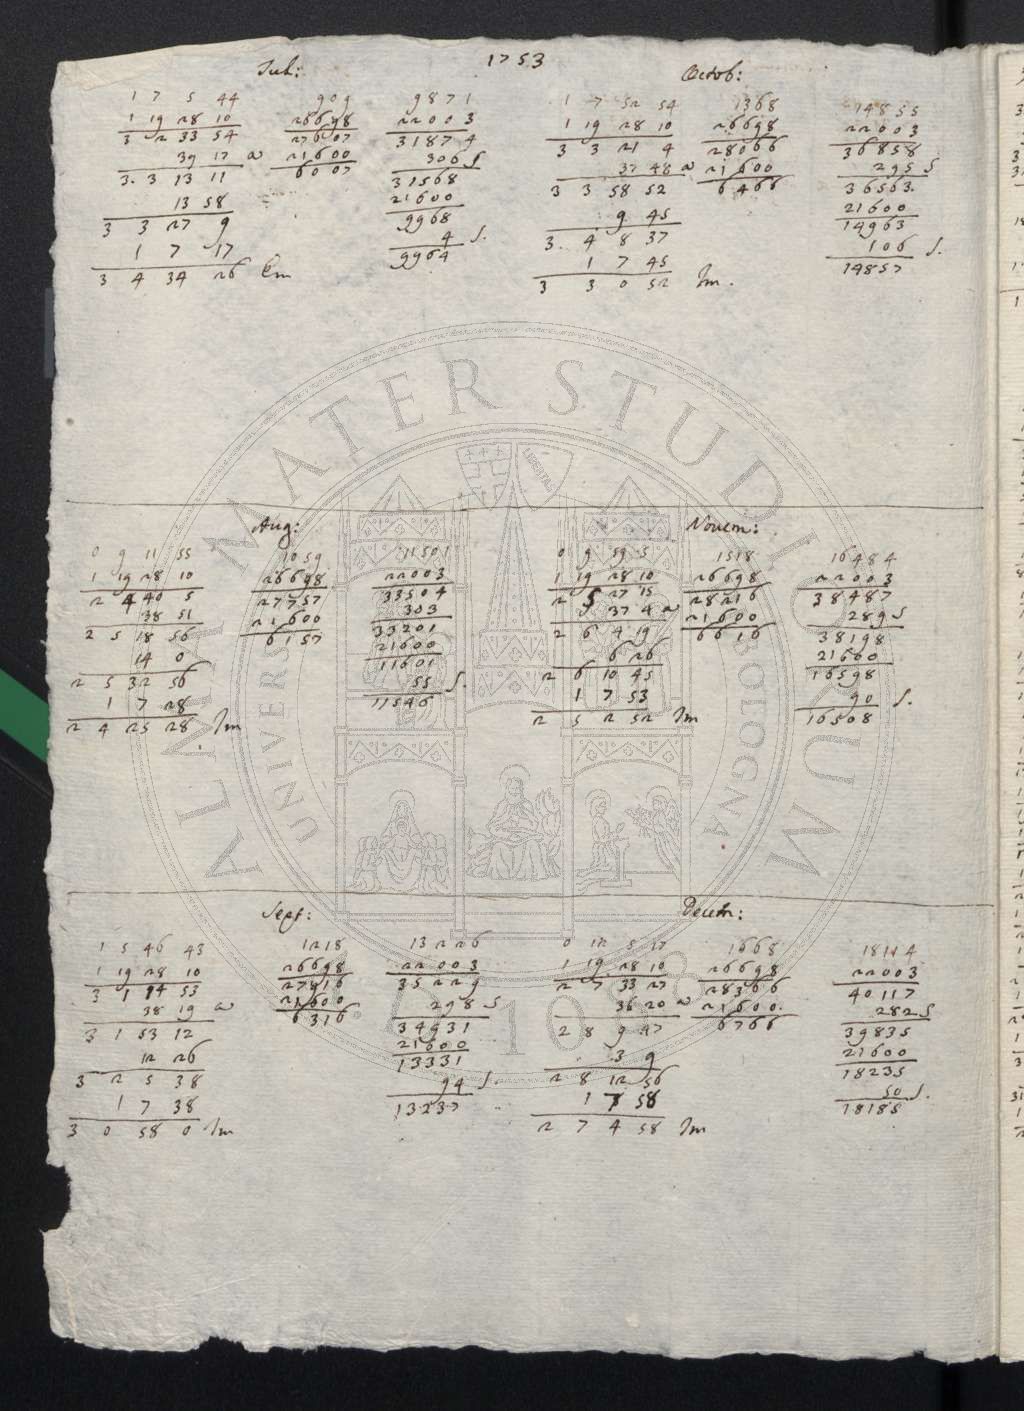 1753
Jul:
1 7 5 44
1 19 28 10
3 2 33 54
39 17 a
3. 3 13 11
13 58
3 3 27 9
1 7 17
3 4 34 26 Em
909
26698
27607
21600
6007
9871
22003
31874
306 S
31568
21600
9968
4 S.
9964
Octob:
1 7 52 54
1 19 28 10
3 3 21 4
37 48 a
3 3 58 52
9 45
3. 4 8 37
1 7 45
3 3 0 52 Im.
1368
26698
28066
21600
6466
14855
22003
36858
295 S
36563.
21600
14963
106 S.
14857
Aug:
0 9 11 55
1 19 28 10
2 4 40 5
38 51
2 5 18 56
14 0
2 5 32 56
1 7 28
2 4 25 28 Im
1059
26698
27757
21600
6157
11501
22003
33504
303
33201
21600
11601
55 S.
11546
Novem:
0 9 59 5
1 19 28 10
2 5 27 15
37 4 a
2 6 4 19
6 26
2 6 10 45
1 7 53
2 5 2 52 Im
1518
26698
28216
21600
6616
16484
22003
38487
289 S
38198
21600
16598
90 S.
16508
Sept:
1 5 46 43
1 19 28 10
3 1 14 53
38 19 a
3 1 53 12
12 26
3 2 5 38
1 7 38
3 0 58 0 Im
1218
26698
27916
21600
6316
13226
22003
35229
298 S
34931
21600
13331
94 S.
13237
Decem:
0 12 5 17
1 19 28 10
2 7 33 27
36 20 a
2 8 9 47
3 9
2 8 12 56
1 7 58
2 7 4 58 Im
1668
26698
28366
21600.
6766
18114
22003
40117
282 S
39835
21600
18235
50 S.
18185
ALMA MATER STUDIORUM
UNIVERSITÀ DI BOLOGNA
A.D. 1088
LIBERTAS